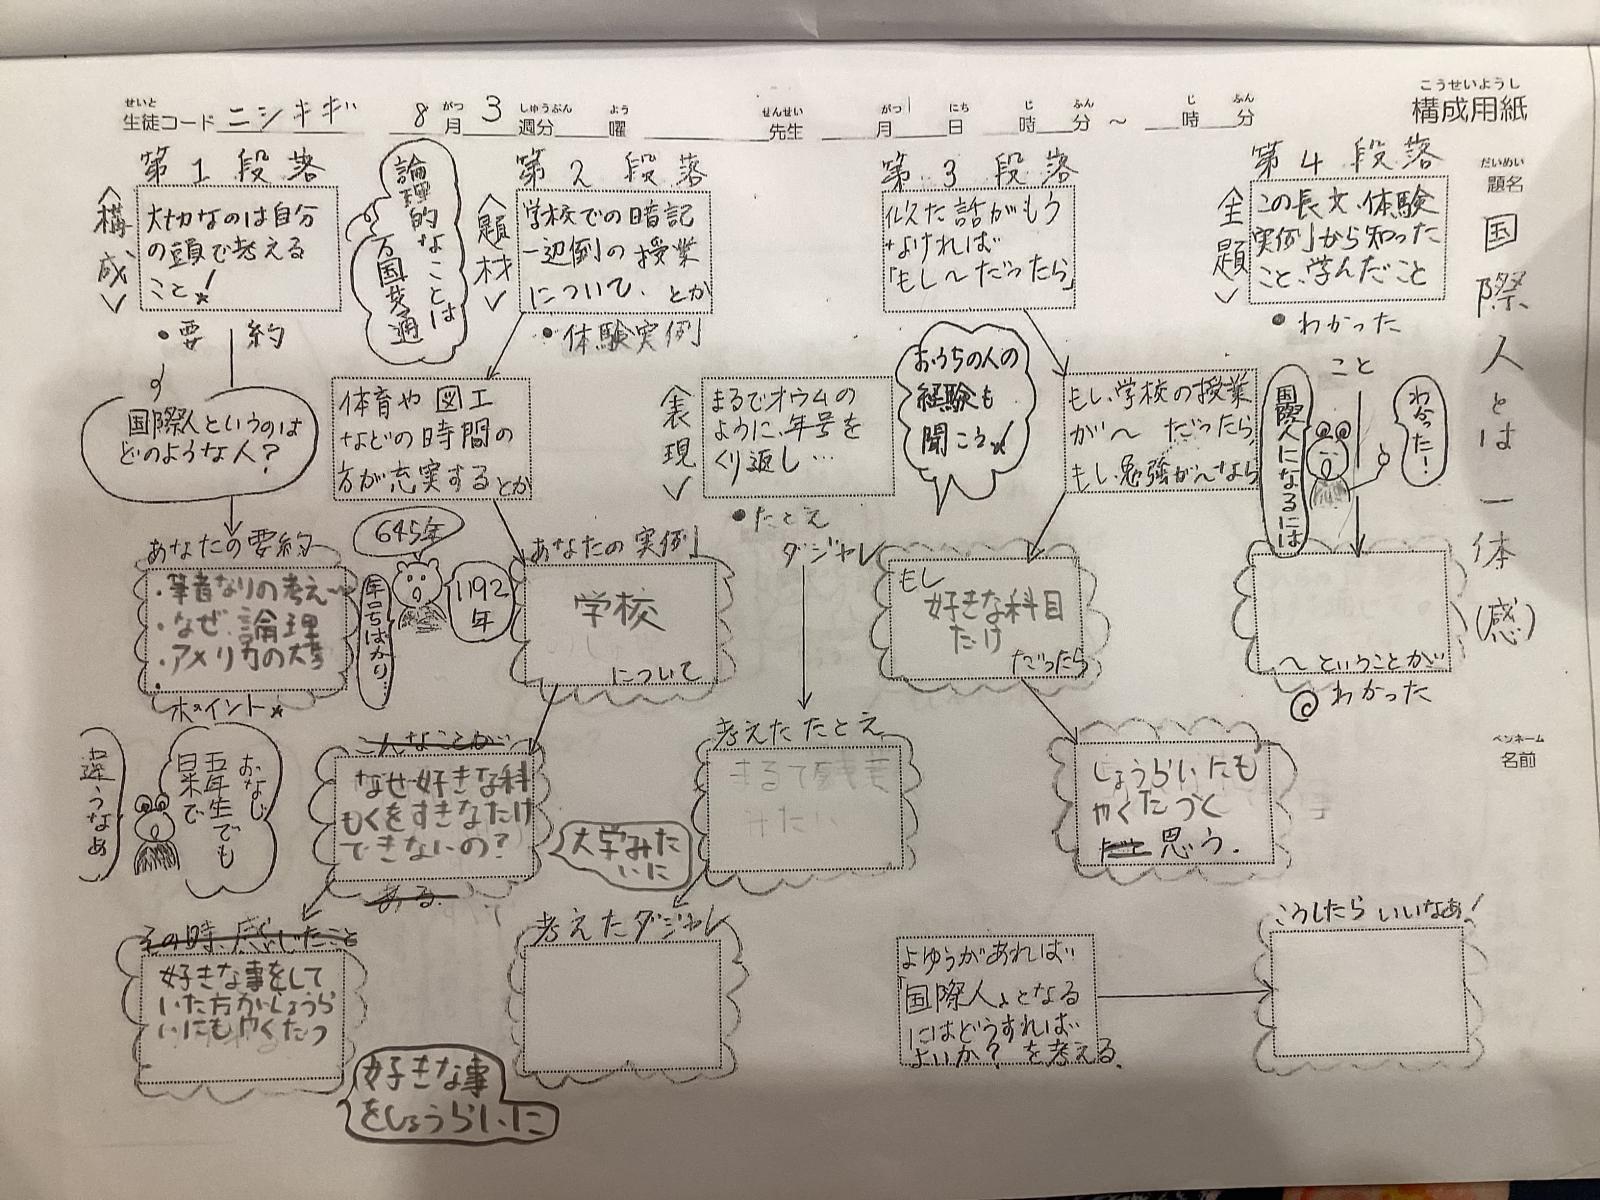 こうせいようし
構成用紙
せいと
生徒コード ニシキギ
8月3週分 曜 先生 月 日 時 分 ～ 時 分
がつ しゅうぶん よう せんせい がつ にち じ ふん じ ふん
だいめい
題名
国際人とは一体(感)
ペンネーム
名前
第1段落
<構成>
大切なのは自分
の頭で考える
こと!
•要約
国際人というのは
どのような人?
あなたの要約
・筆者なりの考え
・なぜ、論理
・アメリカの大学
ポイント
おなじ
五年生でも
日米で
違うなぁ
論理的なことは
万国共通
第2段落
<題材>
学校での暗記
一辺倒の授業
について、とか
•体験実例
体育や図工
などの時間の
方が充実するとか
645年
1192年
年号ばかり…
あなたの実例
学校
について
こんなことが
なぜ好きな科
もくをすきなだけ
できないの?
ある
その時、感じたこと
好きな事をして
いた方がしょうら
いにもやくだつ
好きな事
をしょうらいに
<表現>
まるでオウムの
ように、年号を
くり返し…
•たとえ
ダジャレ
考えたたとえ
みたい
大学みた
いに
考えたダジャレ
第3段落
似た話がもう
なければ
「もし～だったら」
おうちの人の
経験も
聞こう
もし、学校の授業
が～だったら、
もし、勉強が～なら
もし
好きな科目
だけ
だったら
しょうらいにも
やくだつと
思う.
よゆうがあれば
「国際人」となる
にはどうすれば
よいか? を考える.
第4段落
<主題>
この長文、体験
実例から知った
こと、学んだこと
•わかった
こと
国際人になるには
わ分った!
～ということが
◎わかった
こうしたらいいなあ!